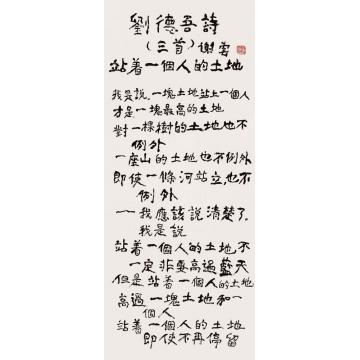 劉德吾詩
（三首）謝雲
站着一個人的土地
我是說，一塊土地站上一個人
才是一塊最高的土地
對一棵樹的土地也不
例外
一座山的土地也不例外
即使一條河站立也不
例外
——我應該說清楚了，
我是說
站着一個人的土地不
一定非要高過藍天
但是站着一個人的土地
高過一塊土地和一
個人
站着一個人的土地
即使不再停留